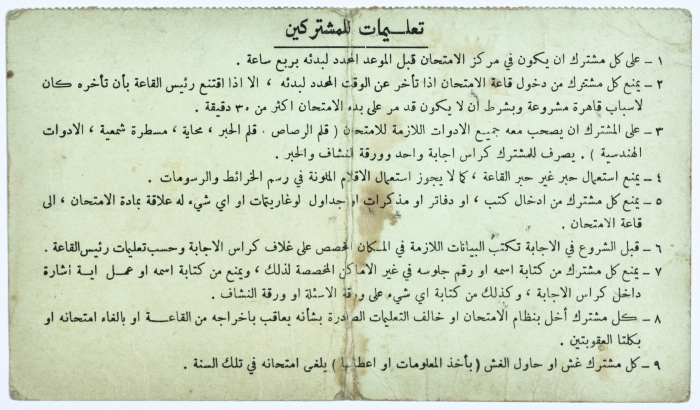 تعليمات للمشتركين
١ – على كل مشترك ان يكون في مركز الامتحان قبل الموعد المحدد لبدئه بربع ساعة .
٢ – يمنع كل مشترك من دخول قاعة الامتحان اذا تأخر عن الوقت المحدد لبدئه ، الا اذا اقتنع رئيس القاعة بأن تأخره كان
لاسباب قاهرة مشروعة وبشرط أن لا يكون قد مر على بدء الامتحان اكثر من ٣٠ دقيقة .
٣ – على المشترك ان يصحب معه جميع الادوات اللازمة للامتحان ( قلم الرصاص . قلم الحبر ، محاية ، مسطرة شمعية ، الادوات
الهندسية ) . يصرف للمشترك كراس اجابة واحد وورقة النشاف والحبر .
٤ – يمنع استعمال حبر غير حبر القاعة ، كما لا يجوز استعمال الاقلام الملونة في رسم الخرائط والرسومات .
٥ – يمنع كل مشترك من ادخال كتب ، او دفاتر او مذكرات او جداول لوغاريتمات او اي شيء له علاقة بمادة الامتحان ، الى
قاعة الامتحان .
٦ – قبل الشروع في الاجابة تكتب البيانات اللازمة في المكان المخصص على غلاف كراس الاجابة وحسب تعليمات رئيس القاعة .
٧ – يمنع كل مشترك من كتابة اسمه او رقم جلوسه في غير الاماكن المخصصة لذلك ، ويمنع من كتابة اسمه او عمل اية اشارة
داخل كراس الاجابة ، وكذلك من كتابة اي شيء على ورقة الاسئلة او ورقة النشاف .
٨ – كل مشترك أخل بنظام الامتحان او خالف التعليمات الصادرة بشأنه يعاقب باخراجه من القاعة او بالغاء امتحانه او
بكلتا العقوبتين .
٩ – كل مشترك غش او حاول الغش ( بأخذ المعلومات او اعطائها ) يلغى امتحانه في تلك السنة .